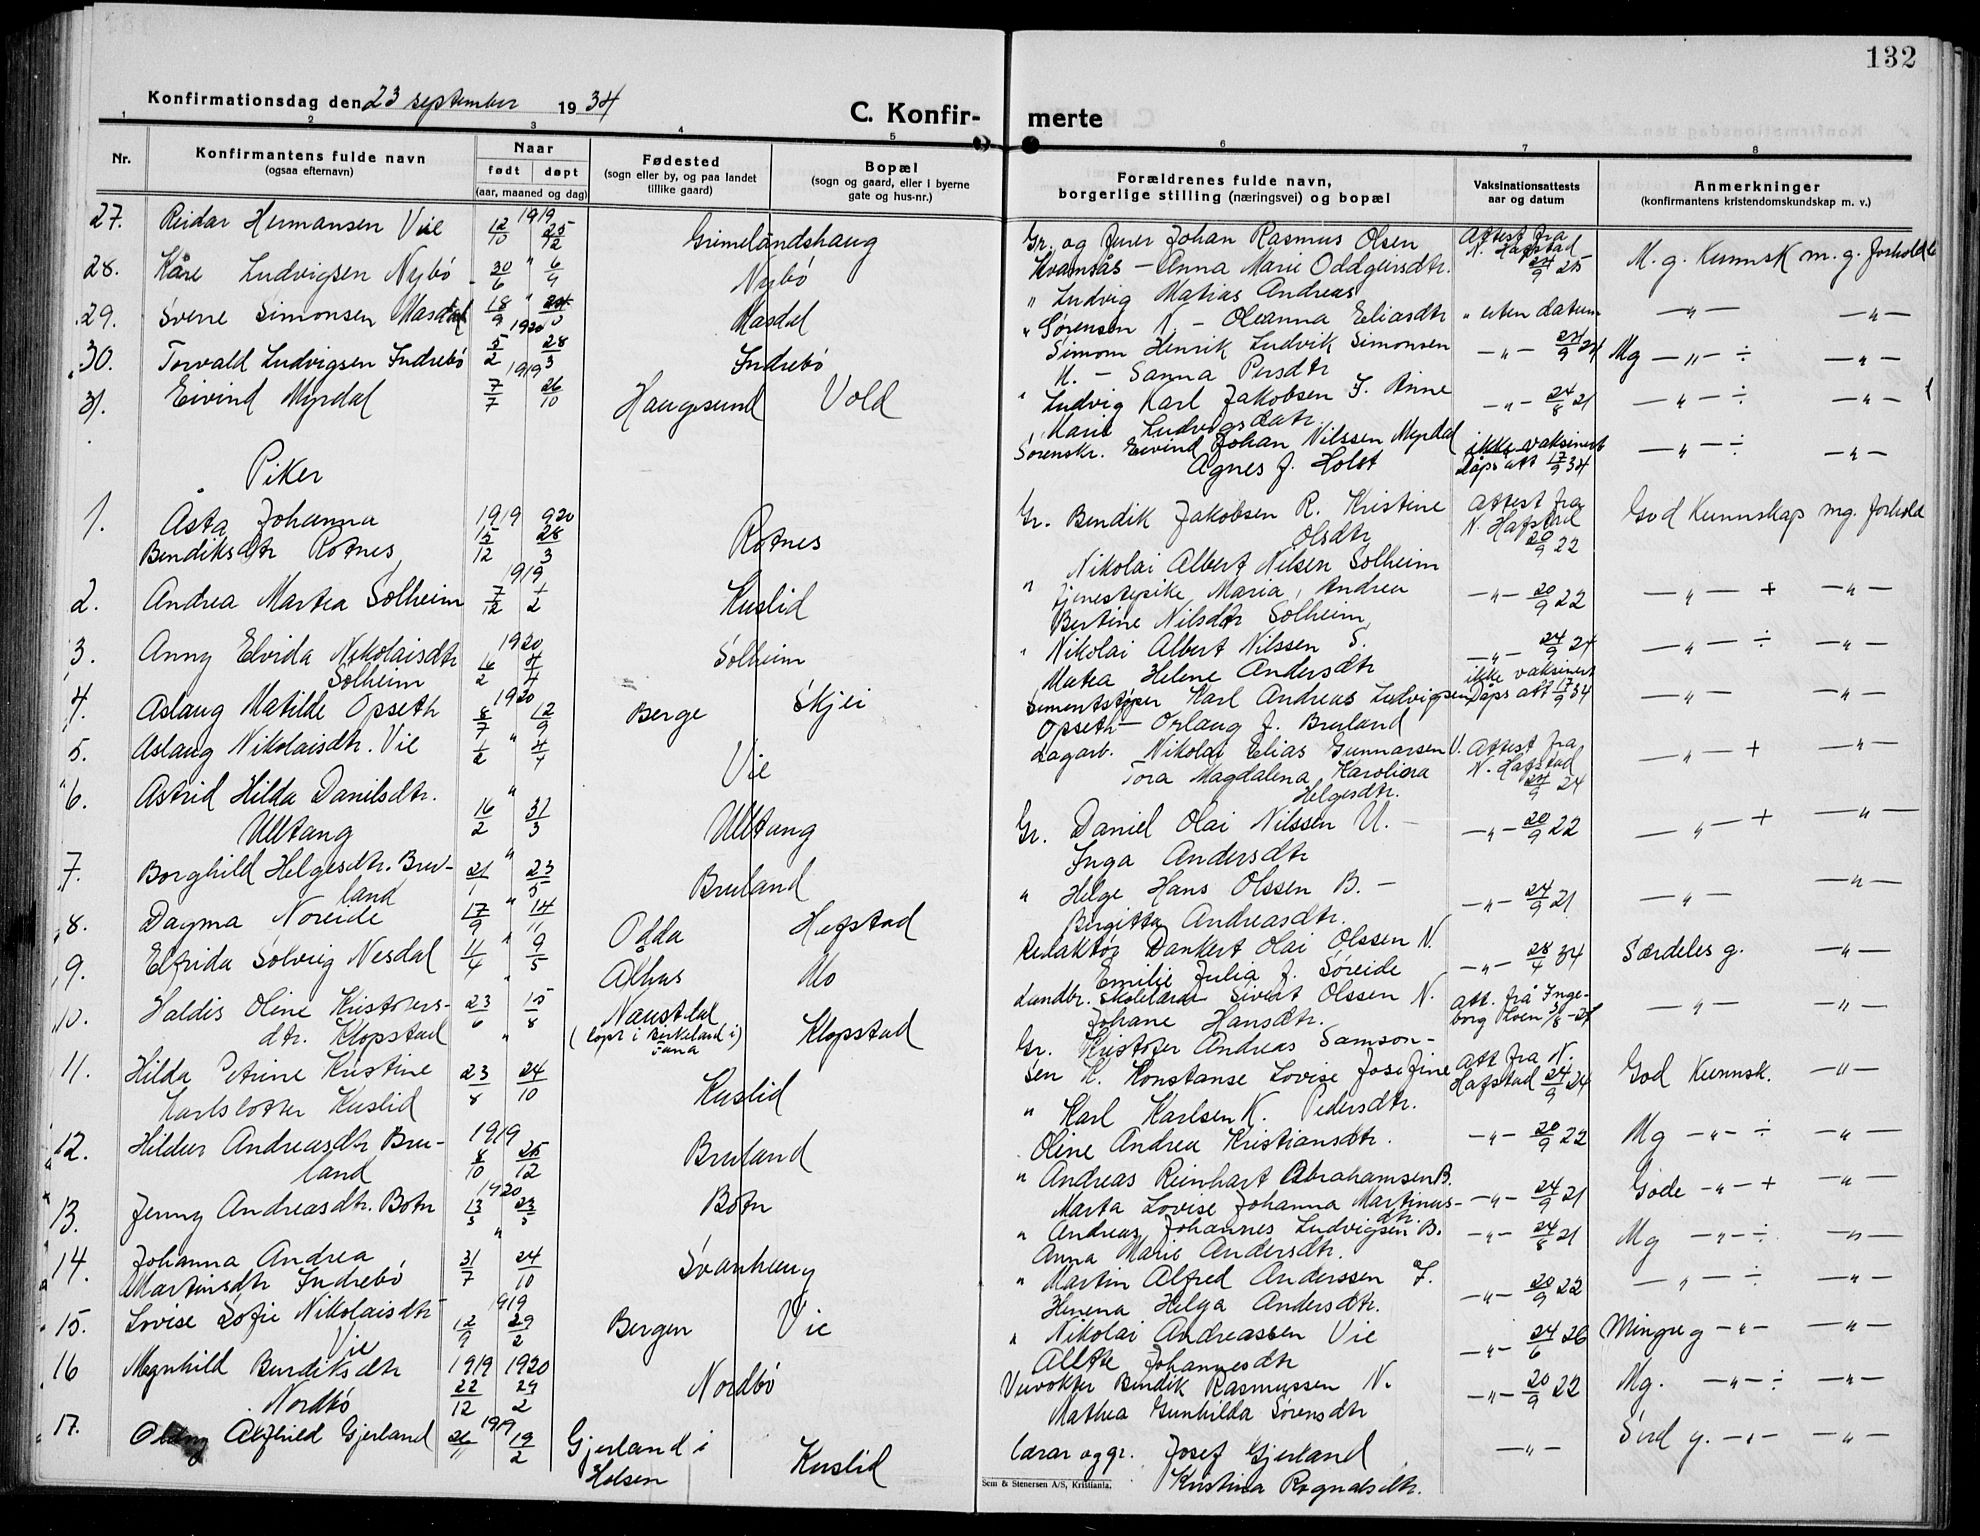 132
Konfirmationsdag den 23 september 1934
C. Konfir-
merte
1 2 3 4 5 6 7 8
Nr.
Konfirmantens fulde navn
(ogsaa efternavn)
Naar
født døpt
(aar, maaned og dag)
Fødested
(sogn eller by, og paa landet
tillike gaard)
Bopæl
(sogn og gaard, eller i byerne
gate og hus-nr.)
Forældrenes fulde navn,
borgerlige stilling (næringsvei) og bopæl
Vaksinationsattests
aar og datum
Anmerkninger
(konfirmantens kristendomskundskap m. v.)
27. Reidar Hermansen Vie 12/10 1919 25/12 Grimelandshaug
Gr. og Johan Rasmus Olsen
Kvamsås - Anna Marie Oddgeirsdtr.
Attest fra
N. Hafstad
24/9 25
M. g. Kunnsk m. g. forhold
28. Kåre Ludvigsen Nybø 30/6 " 6/9 Nybø
" Ludvig Matias Andreas
Sørensen N. - Oleanna Eliasdtr " uten datum
— " — — " —
29. Sverre Simonsen Masdal 18/9 " Masdal
" Simon Henrik Ludvik Simonsen
M. - Sanna Persdtr
— " — 24/9 24 Mg — " — ÷ — " —
30. Torvald Ludvigsen Indrebø 5/2 1920 28/3 Indrebø
" Ludvig Karl Jakobsen I. Anne
Marie Ludvigsdatr
— " — 24/8 21 — " — ÷ — " —
31. Eivind Myrdal 7/7 1919 26/10 Haugesund Vold
Sørenskr. Eivind Johan Nilssen Myrdal
Agnes f. Holst
ikke vaksinert
Dåps att 17/9 34
— " — ÷ — " —
Piker
1. Åsta Johanna
Bendiksdtr Rotnes
1919 920
15/12 28/3
Rotnes
Gr. Bendik Jakobsen R. Kristine
Olsdtr
Attest fra
N. Hafstad
20/9 22
God Kunnskap mg. forhold
2. Andrea Martea Solheim 1919 7/12 1/2 Kuslid
" Nikolai Albert Nilsen Solheim
tjenestepike Maria, Andrea
Bertine Nilsdtr Solheim
— " — 20/9 22 — " — + — " —
3. Anny Elvida Nikolaisdtr
Solheim
1920 16/2 4/4 Solheim
" Nikolai Albert Nilssen S.
Matea Helene Andersdtr
— " — 24/9 24 — " — ÷ — " —
4. Aslaug Matilde Opseth 1920 8/7 12/9 Berge Skjei
Sementstøper Karl Andreas Ludvigsen
Opseth - Orlaug f. Bruland
ikke vaksinert
Dåps att 17/9 34
— " — — " —
5. Aslaug Nikolaisdtr. Vie 1/2 " 4/4 Vie
Dagarb. Nikolai Elias Gunnarsen V.
Tora Magdalena Karolina
Helgesdtr.
Attest fra
N. Hafstad
24/9 24
— " — + — " —
6. Astrid Hilda Danilsdtr.
Ulltang
16/2 " 31/3 Ulltang
Gr. Daniel Olai Nilssen U. -
Inga Andersdtr
— " — 20/9 22 — " — + — " —
7. Borghild Helgesdtr. Bru-
land
21/1 " 23/5 Bruland
" Helge Hans Olssen B. -
Bergitta Andreasdtr.
— " — 24/9 21 — " — — " —
8. Dagma Noreide 17/9 " 14/11 Odda Hefstad
Redaktør Dankert Olai Olssen N.
Emilie Julia f. Søreide
— " — 28/4 34 Særdeles g. — " —
9. Elfrida Solveig Nesdal 11/4 " 9/5 Alhus Mo
Landbr. skolelærar Sivert Olssen N.
Johane Hansdtr.
att. frå Inge-
borg Loen 3/8 -24
— " — — " —
10. Haldis Oline Kristofers-
dtr. Klopstad
23/6 " 15/8 Naustdal
(døpt i Birkeland i)
Fana
Klopstad
Gr. Kristofer Andreas Samson-
sen K. Konstanse Lovise Josefine
Pedersdtr.
Att fra N.
Hafstad 24/9 24
God Kunnsk. — " —
11. Hilda Petrine Kristine
Karlsdotter Kuslid
23/8 " 24/10 Kuslid
" Karl Karlsen K.
Oline Andrea Kristiansdtr.
— " — 20/9 22 Mg — " — ÷ — " —
12. Hildur Andreasdtr Bru-
land
1919 8/10 25/12 Bruland
" Andreas Reinhart Abrahamsen B.
Marta Lovise Johanna Martinus-
dtr.
— " — 24/9 21 Gode — " — + — " —
13. Jenny Andreasdtr. Botn 1920 13/3 23/5 Botn
" Andreas Johannes Ludvigsen B.
Anna Marie Andersdtr.
— " — 24/8 21 Mg — " — ÷ — " —
14. Johanna Andrea
Martinsdtr Indrebø
31/7 " 24/10 Svanhaug
" Martin Alfred Anderssen I.
Helga Andersdtr.
— " — 20/9 22 — " — ÷ — " —
15. Lovise Sofie Nikolaisdtr
Vie
1919 12/9 29/2 Bergen Vie
" Nikolai Andreassen Vie
Alette Johannesdtr
— " — 24/6 26 Mingre g — " — — " —
16 Magnhild Bendiksdtr
Nordbø
1919 1920
22/12 29/2
Nordbø
Veivokter Bendik Rasmussen N.
Mathea Gunhilda Sørensdtr
— " — 20/9 22 Mg. — " — ÷ — " —
17. Olaug Alfhild Gjerland 26/11 1919 19/2 Gjerland i
Holsen
Kuslid
lærar og gr. Josef Gjerland
Kristina Rognaldsdtr.
— " — Særd g. — " — — " —
Sem & Stenersen A/S, Kristiania.